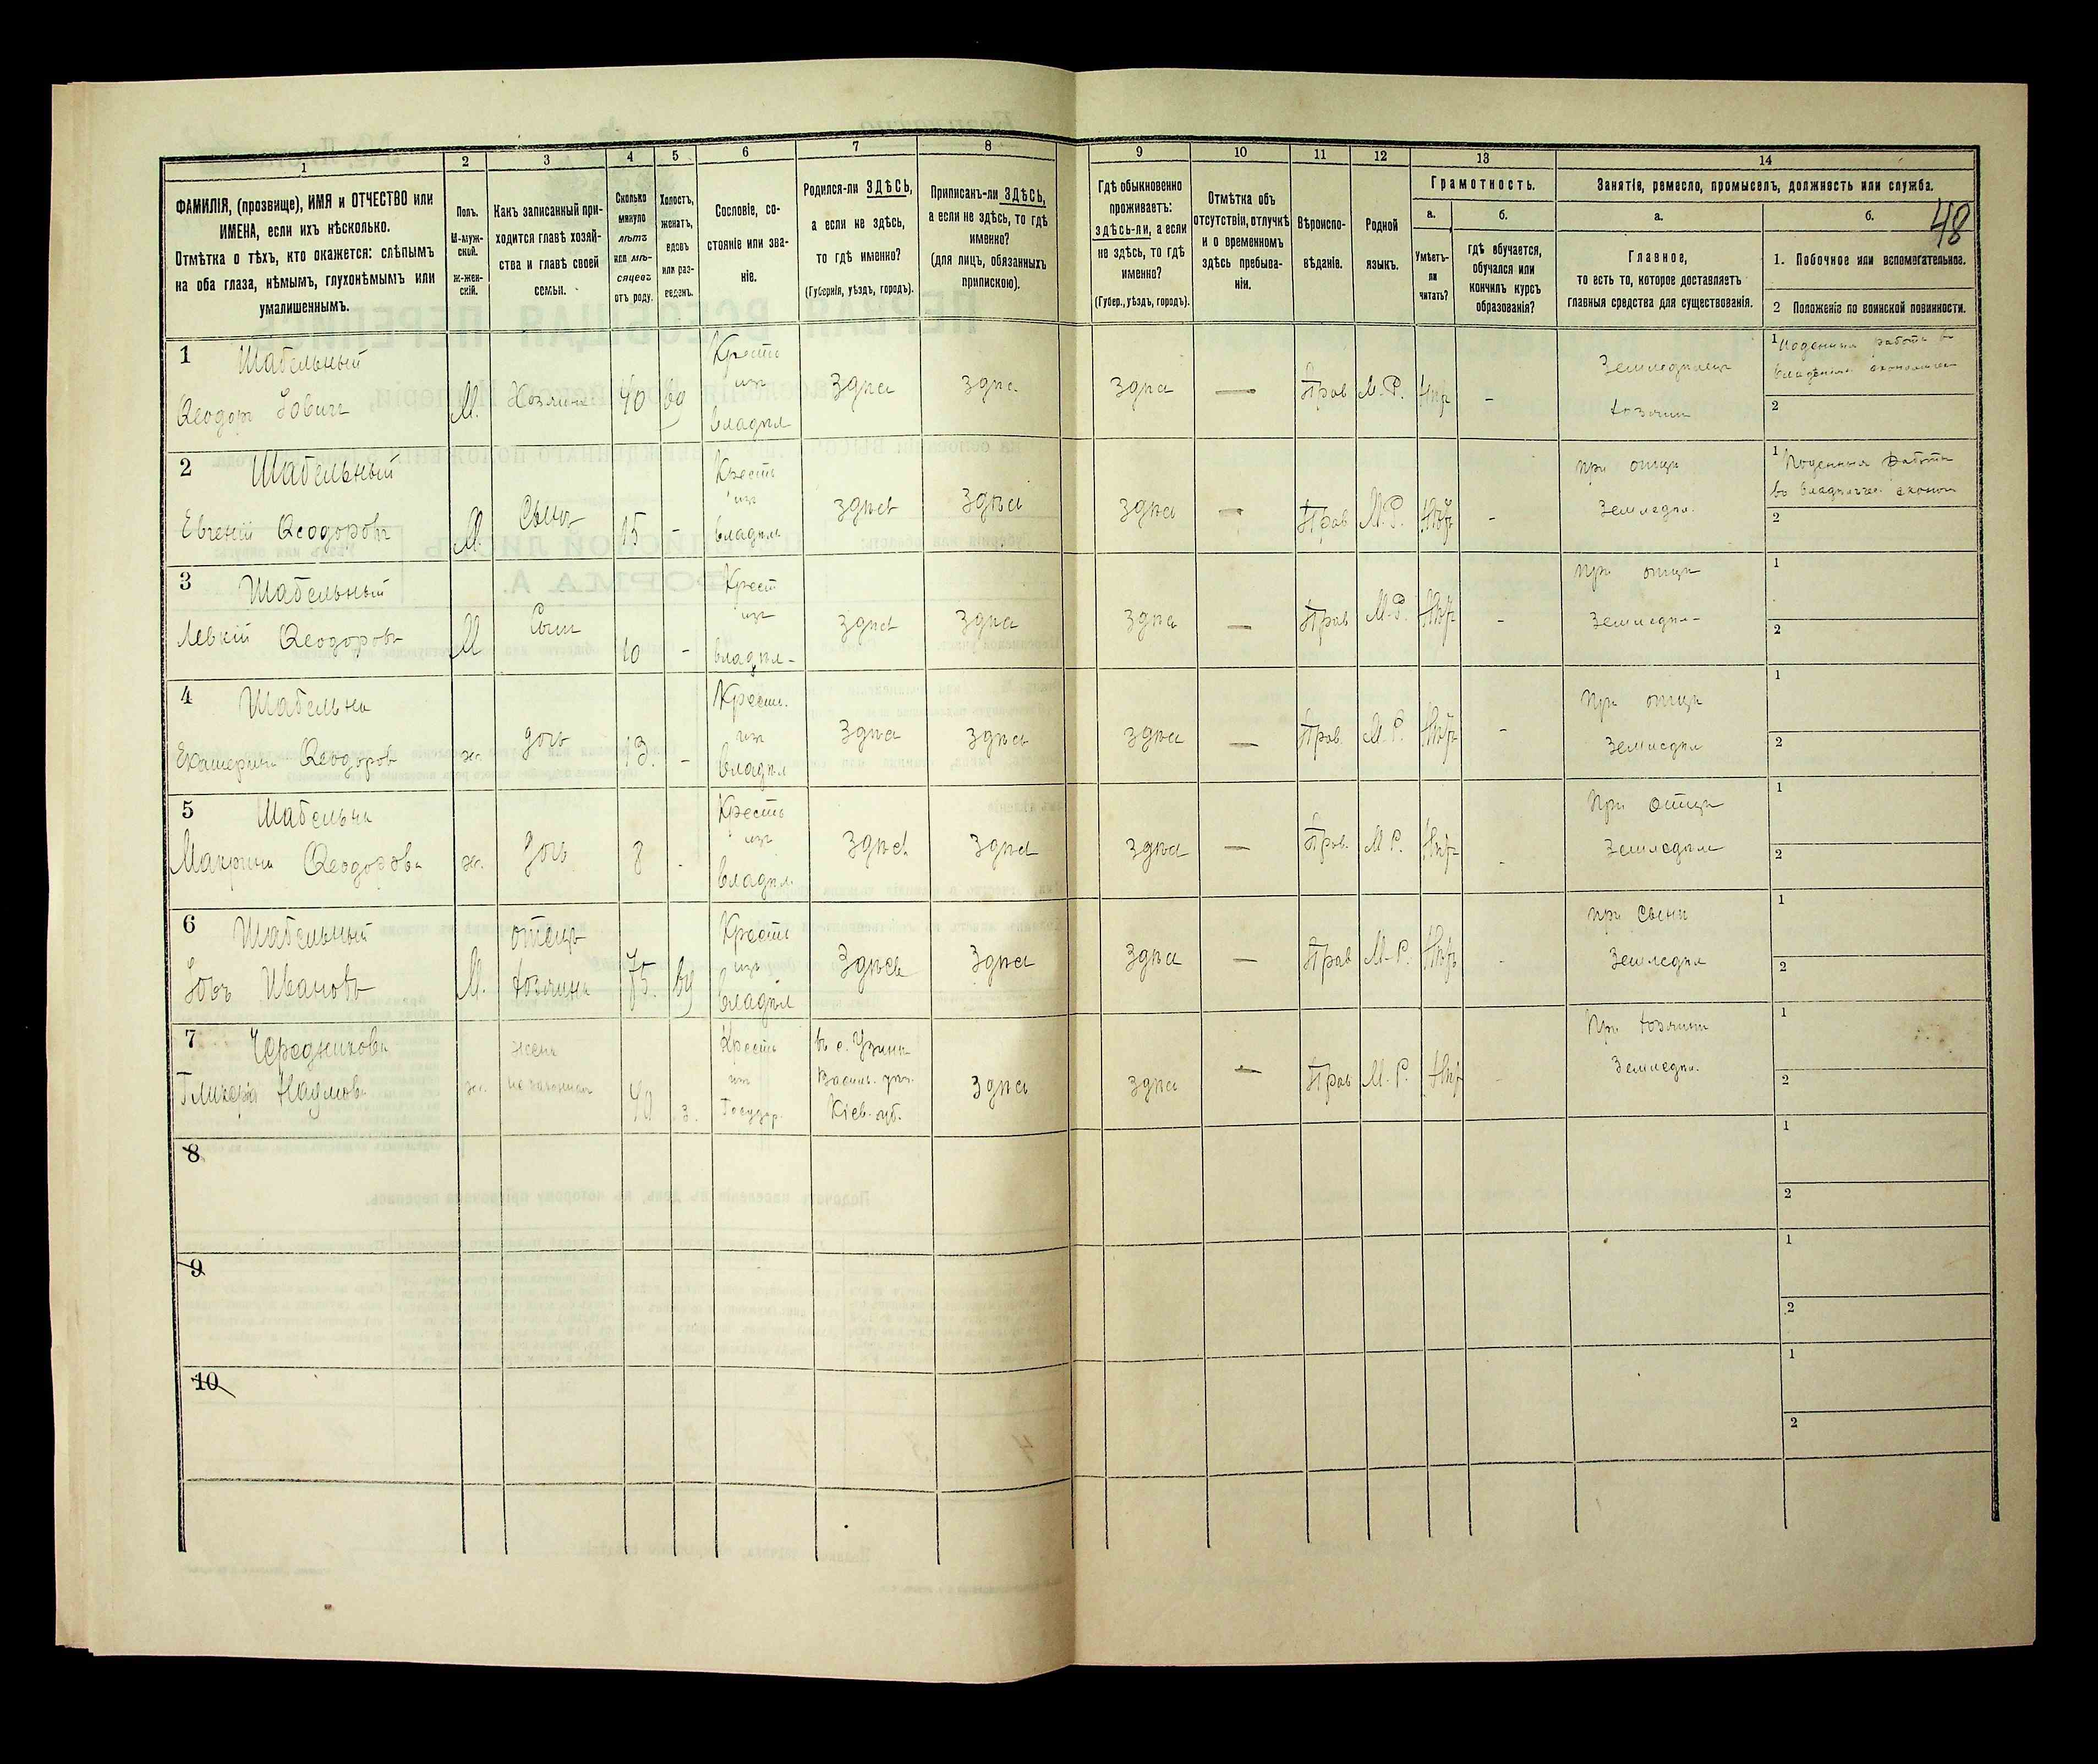 48
1 2 3 4 5 6 7 8 9 10 11 12 13 14
ФАМИЛІЯ, (прозвище), ИМЯ и ОТЧЕСТВО или
ИМЕНА, если ихъ нѣсколько.
Отмѣтка о тѣхъ, кто окажется: слѣпымъ
на оба глаза, нѣмымъ, глухонѣмымъ или
умалишеннымъ.
Полъ.
М-муж-
ской.
Ж-жен-
скій.
Какъ записанный при-
ходится главѣ хозяй-
ства и главѣ своей
семьи.
Сколько
минуло
лѣтъ
или мѣ-
сяцевъ
отъ роду.
Холостъ,
женатъ,
вдовъ
или раз-
веденъ.
Сословіе, со-
стояніе или зва-
ніе.
Родился-ли ЗДѢСЬ,
а если не здѣсь,
то гдѣ именно?
(Губернія, уѣздъ, городъ).
Приписанъ-ли ЗДѢСЬ,
а если не здѣсь, то гдѣ
именно?
(для лицъ, обязанныхъ
припискою).
Гдѣ обыкновенно
проживаетъ:
здѣсь-ли, а если
не здѣсь, то гдѣ
именно?
(Губер., уѣздъ, городъ).
Отмѣтка объ
отсутствіи, отлучкѣ
и о временномъ
здѣсь пребыва-
ніи.
Вѣроиспо-
вѣданіе.
Родной
языкъ.
Грамотность.
а.
Умѣетъ-
ли
читать?
б.
гдѣ обучается,
обучался или
кончилъ курсъ
образованія?
Занятіе, ремесло, промыселъ, должность или служба.
а.
Главное,
то есть то, которое доставляетъ
главныя средства для существованія.
б.
1. Побочное или вспомогательное.
2 Положеніе по воинской повинности.
1 Шабельный
Ѳеодоръ Іовичъ
М. Хозяинъ 40 вд
Крестьи
изъ
владѣл
здѣсь здѣсь здѣсь — Прав М.Р. Нѣтъ -
Земледѣлецъ
хозяин
1 Поденная работа в
2
2 Шабельный
Евгеній Ѳеодоровъ
М. Сынъ 15 -
Кресть
изъ
владѣл.
здѣсь здѣсь здѣсь — Прав М.Р. Нѣтъ -
при отцѣ
Земледѣл.
1 Поденная работа
2
3 Шабельный
Левкій Ѳеодоровъ
М Сынъ 10 -
Крест
изъ
владѣл-
здѣсь здѣсь здѣсь — Прав М.Р. Нѣтъ -
при отцѣ
Земледѣл-
1
2
4 Шабельна
Екатерина Ѳеодоров
ж. дочь 13. -
Крест.
изъ
владѣл
здѣсь здѣсь здѣсь — Прав. М.Р. Нѣтъ -
при отцѣ
Земледѣл
1
2
5 Шабельна
Макрина Ѳеодорова
ж. дочь 8 -
Кресть
изъ
владѣл.
здѣсь здѣсь здѣсь — Прав. М.Р. Нѣтъ -
При отцѣ
Земледѣл
1
2
6 Шабельный
Іовъ Ивановъ
М. отецъ
хозяина 75. вд
Кресть
изъ
владѣл
здѣсь здѣсь здѣсь — Прав М.Р. Нѣтъ -
при сынѣ
Земледѣл
1
2
7 Чередникова
Гликерія Наумова
ж. жена
незаконная 40 з.
Кресть
изъ
Государ.
въ с. Узинѣ
Васильк. уѣз.
Кіев. губ.
здѣсь здѣсь — Прав М.Р. Нѣтъ -
При хозяинѣ
Земледѣл.
1
2
8
1
2
9
1
2
10
1
2